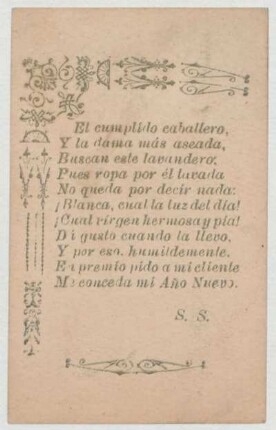 El cumplido caballero,
Y la dama más aseada,
Buscan este lavandero;
Pues ropa por él lavada
No queda por decir nada:
¡Blanca, cual la luz del día!
¡Cual vírgen hermosa y pía!
Di gusto cuando la llevo,
Y por eso, humildemente,
En premio pido a mi cliente
Me conceda mi Año Nuevo.
S. S.